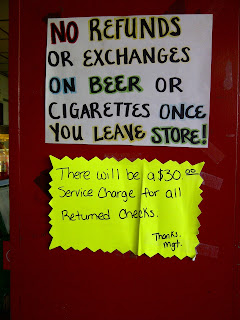 NO REFUNDS
OR EXCHANGES
ON BEER OR
CIGARETTES ONCE
YOU LEAVE STORE!
There will be a $30.00
Service Charge for all
Returned Checks.
Thanks,
Mgt.